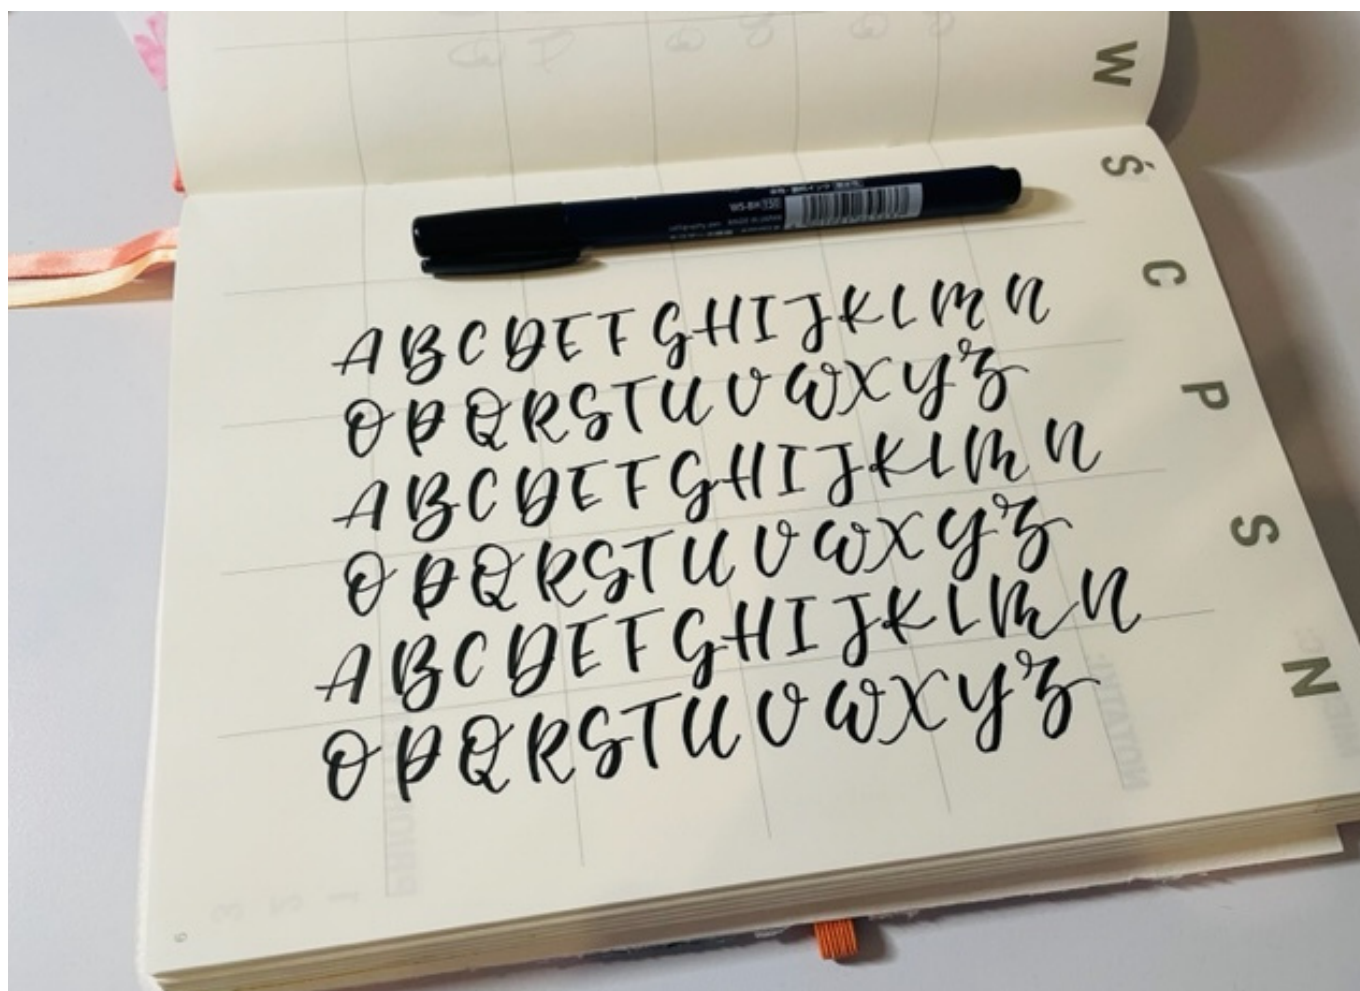 W
Ś
C
P
S
N
WS-BH 150
MADE IN JAPAN
A B C D E F G H I J K L M N
O P Q R S T U V W X Y Z
A B C D E F G H I J K L M N
O P Q R S T U V W X Y Z
A B C D E F G H I J K L M N
O P Q R S T U V W X Y Z
6